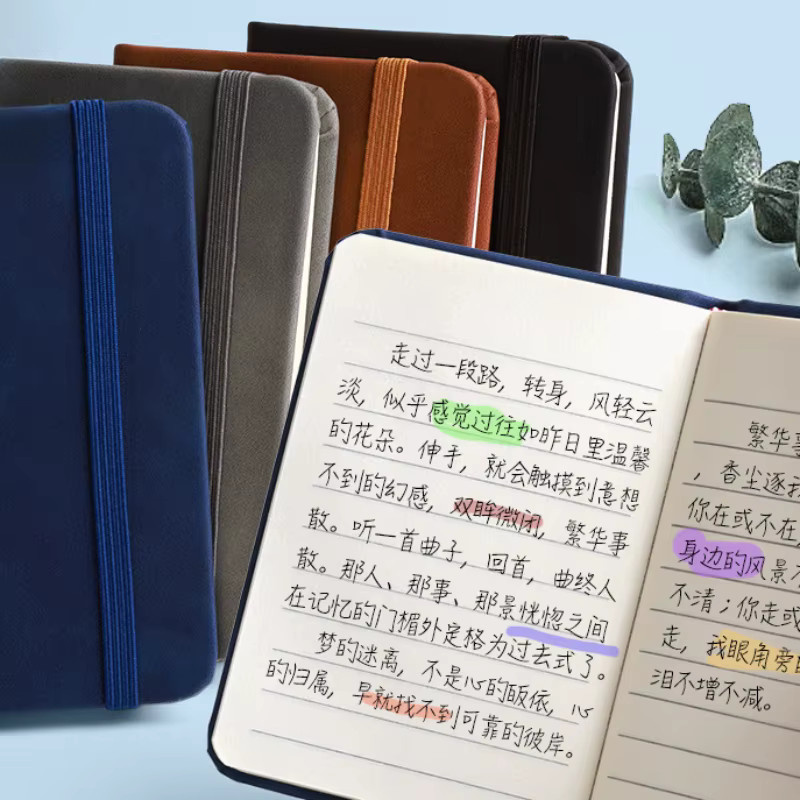 走过一段路，转身，风轻云
淡，似乎感觉过往如昨日里温馨
的花朵。伸手，就会触摸到意想
不到的幻感，双眸微闭，繁华事
散。听一首曲子，回首，曲终人
散。那人、那事、那景恍惚之间
在记忆的门楣外定格为过去式了。
梦的迷离，不是心的皈依，心
的归属，早就找不到可靠的彼岸。
繁华事
，香尘逐我
你在或不在
身边的风景
不清；你走或
走，我眼角旁
泪不增不减。